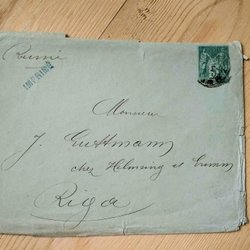 Russie
IMPRIMÉ
Monsieur
J. Guttmann
chez Helmsing et Grimm
Riga